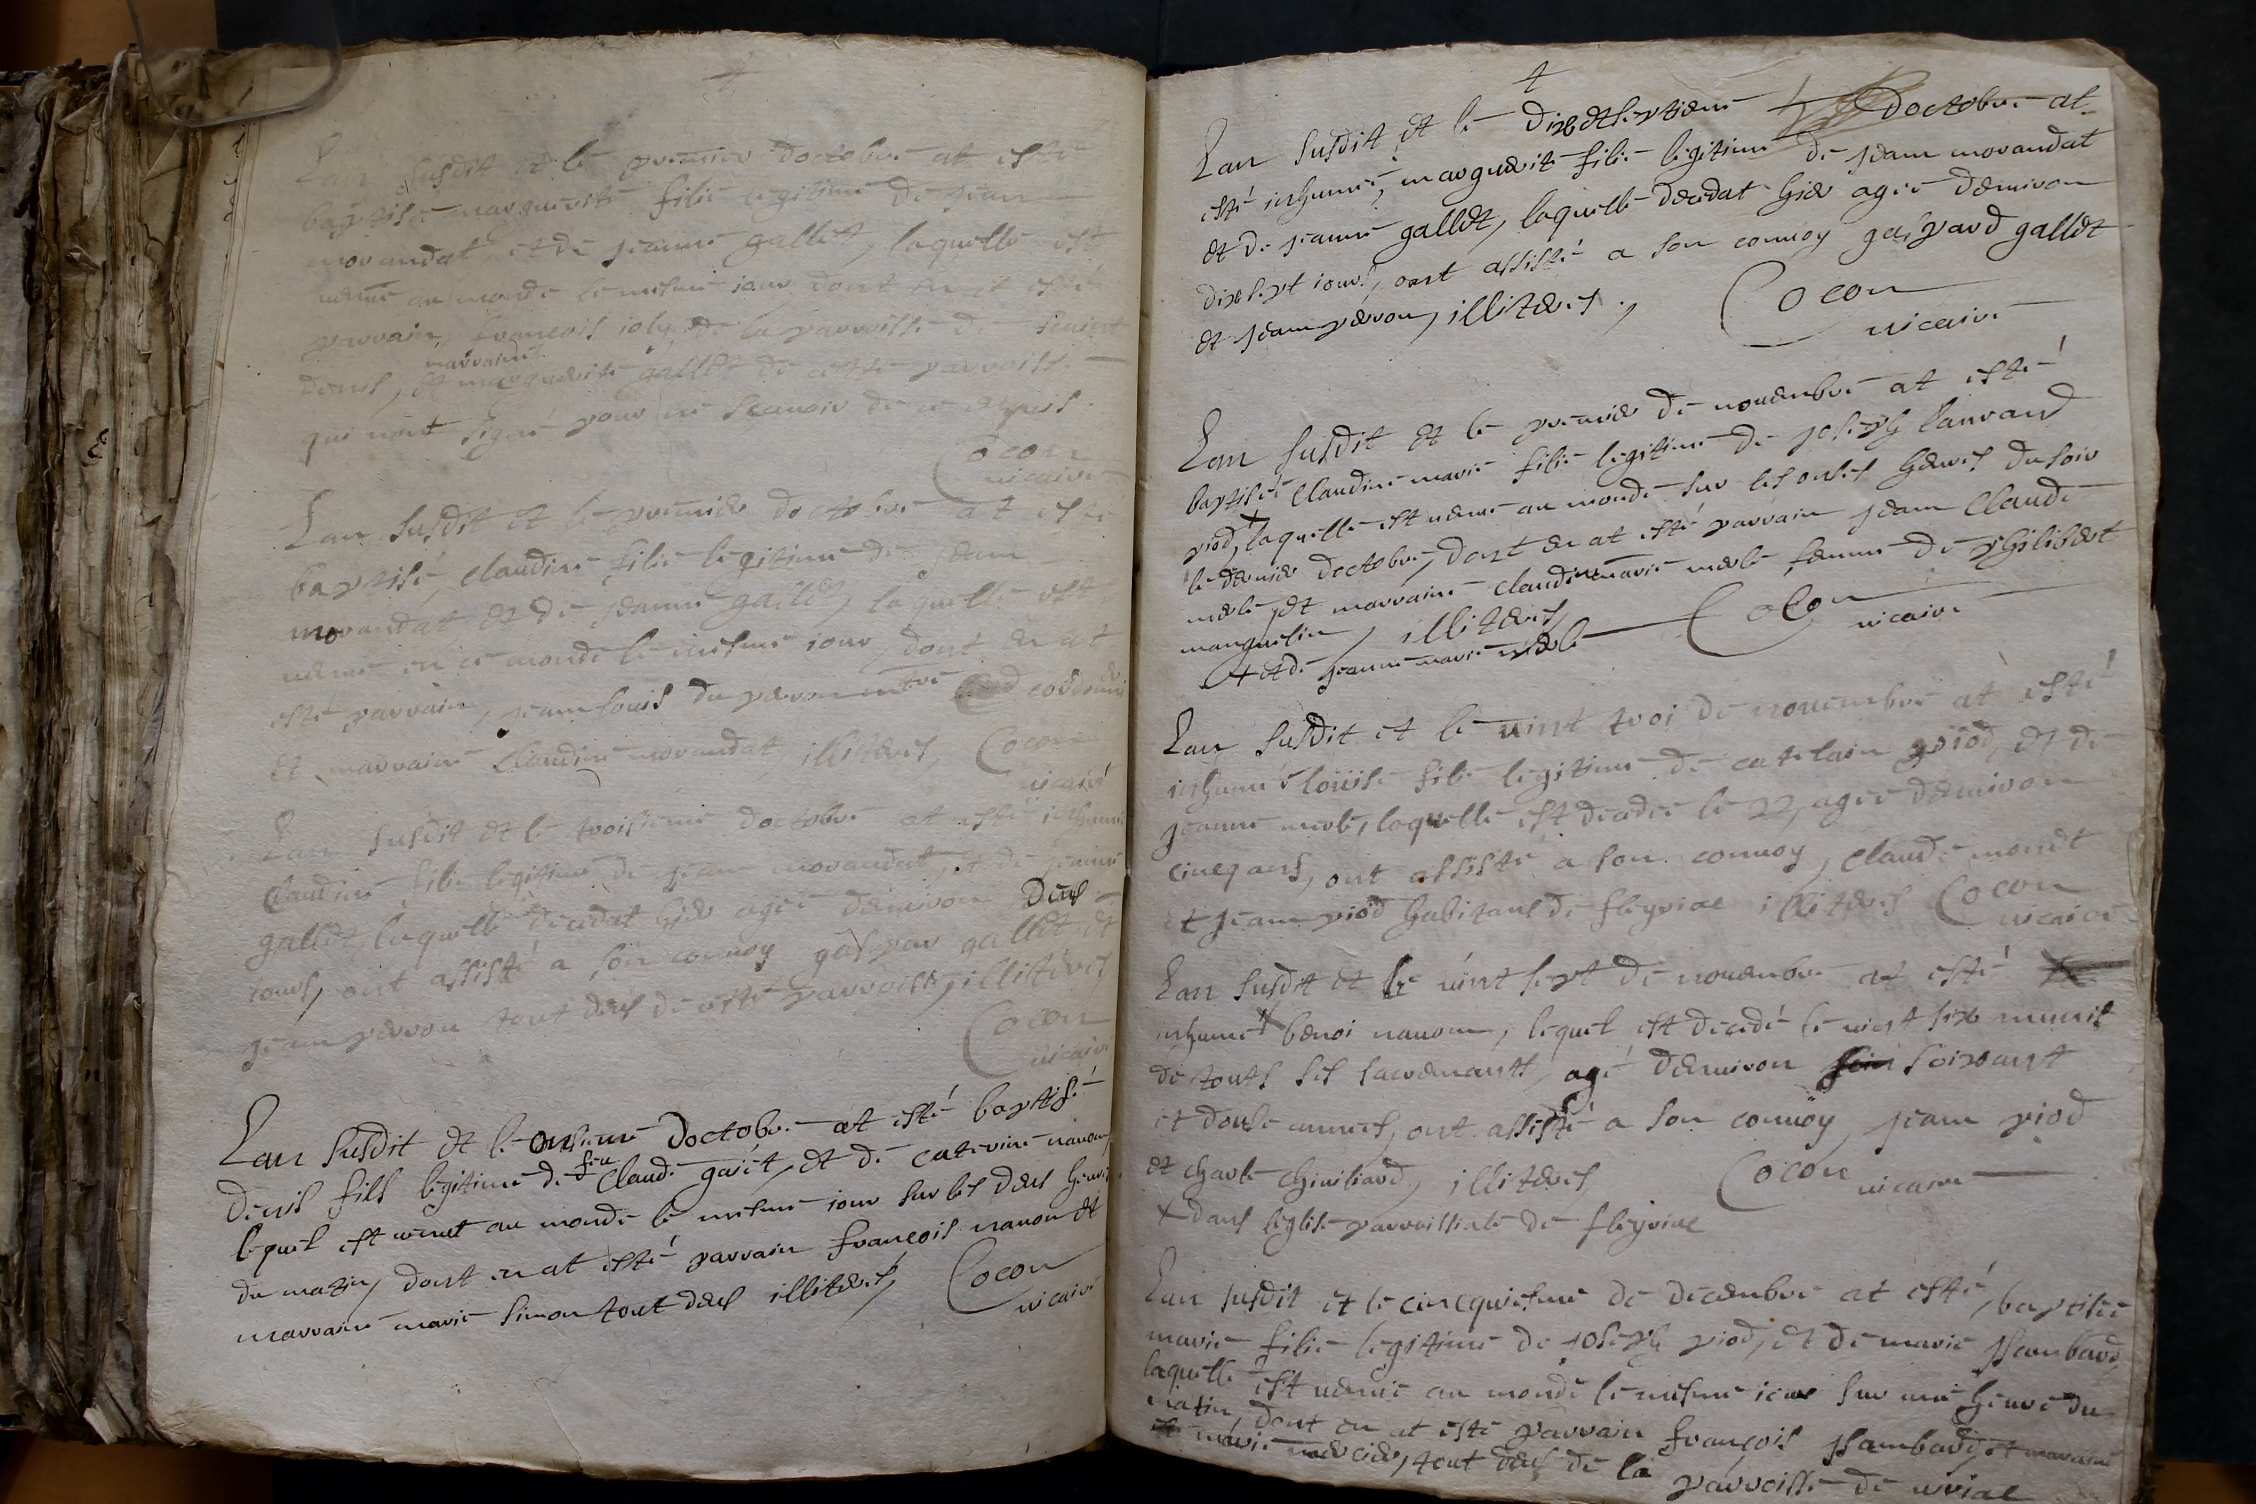 Lan susdit et le premier doctobre at esté
baptisée marguerite fille legitime de jean
morandat et de jeanne gallet, laquelle est
uenue au monde le mesme iour, dont en at esté
parrain, francois ioly de la parroisse de
denis, et marguerite gallet de cette parroisse
marraine
qui nont signé pour ne scauoir de ce enquis
Cocon
uicaire
Lan susdit et le premier doctobre at esté
baptisé, claudine fille legitime de jean
morandat et de jeanne gallet, laquelle est
uenue en ce monde le mesme iour, dont en at
esté parrain, jean louis du perron
et marraine claudine morandat illiteres, Cocon
uicaire
Lan susdit et le troisieme doctobre at esté inhumé
Claudine fille legitime de jean morandat, et de jeanne
gallet, laquelle decedat hier agee denuiron deus
iours, ont assisté a son conuoy gaspar gallet et
jean perron tout deus de cette parroisse, illiteres
Cocon
uicaire
Lan susdit et le onsieme doctobre at esté baptisé
denis fils legitime de feu Claude gaiet, et de caterine nauon,
lequel est uenut au monde le mesme iour sur les deus heures
du matin, dont en at esté parrain francois nauon et
marraine marie simon tout deus illiteres, Cocon
uicaire
Lan susdit et le dixetseptieme doctobre at
esté inhumée, marguerite fille legitime de jean morandat
et de jeanne gallet, laquelle decedat hier agee denuiron
dixsept iours, ont assisté a son conuoy gaspard gallet
et jean perron, illiteres, Cocon
uicaire
Lan susdit et le premier de nouembre at esté
baptisée claudine marie fille legitime de joseph Lanrand
piod, + laquelle est uenue au monde sur les onses heures du soir
le dernier doctobre, dont en at esté parrain jean claude
merle, et marraine claudine marie merle femme de philibert
manguelin, illiteres, Cocon
uicaire
+ et de jeanne marie merle
Lan susdit et le uint troi de nouembre at esté
inhumé loüise fille legitime de catelain piod, et de
jeanne merle, laquelle est decedee le 22, agee denuiron
cincq ans, ont assisté a son conuoy, claude monet
et jean piod habitans de fleyriac illiteres Cocon
uicaire
Lan susdit et le uint sept de nouembre at esté
inhumé + benoi nauon, lequel est decedé le uint six munit
de touts ses sacremants, agé denuiron soixant
et douse annees, ont assisté a son conuoy jean piod
et charle chiuiliard, illiteres, Cocon uicaire
+ dans leglise parroissiale de fleyriac
Lan susdit et le cincquiesme de decembre at esté, baptisée
marie fille legitime de joseph piod, et de marie jambard,
laquelle est uenue au monde le mesme iour sur une heure du
matin, dont en at esté parrain francois jambard, et marraine
marie mercier, tout deus de la parroisse de uiriac